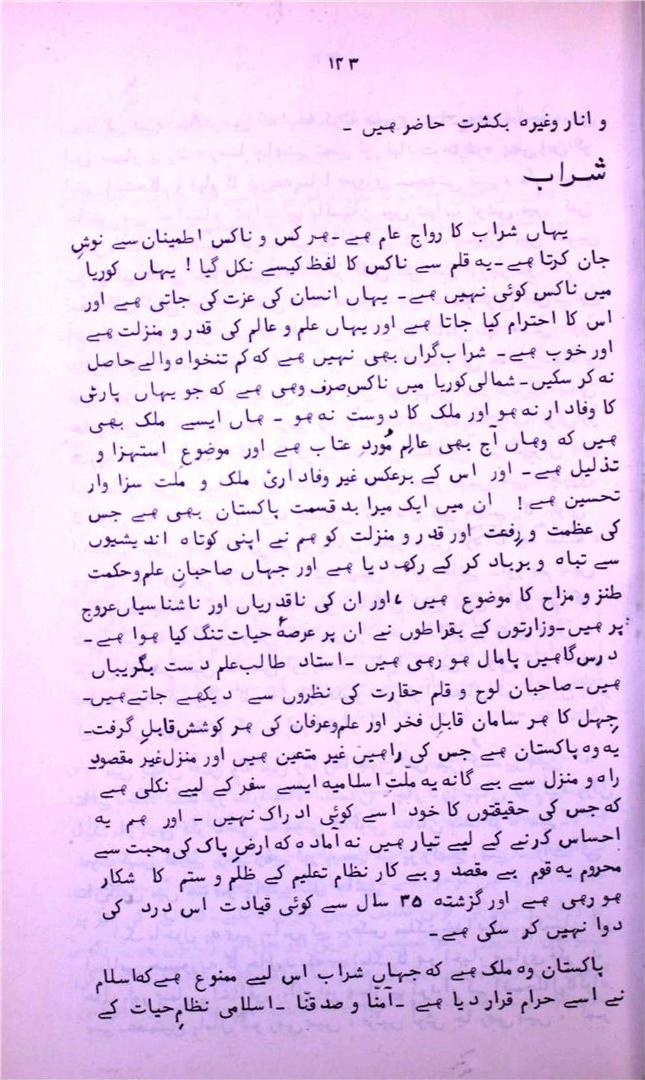 ۱۲۳
و انار وغیرہ بکثرت حاضر ھیں ۔
شراب
یہاں شراب کا رواج عام ھے۔ھر کس و ناکس اطمینان سے نوشِ
جان کرتا ھے۔یہ قلم سے ناکس کا لفظ کیسے نکل گیا ! یہاں کوریا
میں ناکس کوئی نہیں ھے۔ یہاں انسان کی عزت کی جاتی ھے اور
اس کا احترام کیا جاتا ھے اور یہاں علم و عالم کی قدر و منزلت ھے
اور خوب ھے۔ شراب گراں بھی نہیں ھے کہ کم تنخواہ والے حاصل
نہ کر سکیں۔شمالی کوریا میں ناکس صرف وھی ھے کہ جو یہاں پارٹی
کا وفادار نہ ھو اور ملک کا دوست نہ ھو ۔ ھاں ایسے ملک بھی
ھیں کہ وھاں آج بھی عالِم مُوردِ عتاب ھے اور موضوعِ استہزا و
تذلیل ھے۔ اور اس کے برعکس غیر وفاداریٔ ملک و ملت سزا وار
تحسین ھے! ان میں ایک میرا بد قسمت پاکستان بھی ھے جس
کی عظمت و رِفعت اور قدر و منزلت کو ھم نے اپنی کوتاہ اندیشیوں
سے تباہ و برباد کر کے رکھ دیا ھے اور جہاں صاحبانِ علم و حکمت
طنز و مزاح کا موضوع ھیں ، اور ان کی ناقدریاں اور ناشناسیاں عروج
پر ھیں۔وزارتوں کے بقراطوں نے ان پر عرصۂ حیات تنگ کیا ھوا ھے۔
درس گاھیں پامال ھو رھی ھیں ۔استاد طالب علم دست بگریباں
ھیں۔صاحبان لوح و قلم حقارت کی نظروں سے دیکھے جاتے ھیں۔
جہل کا ھر سامان قابلِ فخر اور علم و عرفان کی ھر کوشش قابلِ گرفت۔
یہ وہ پاکستان ھے جس کی راھیں غیر متعین ھیں اور منزل غیر مقصود۔
راہ و منزل سے بے گانہ یہ ملّتِ اسلامیہ ایسے سفر کے لیے نکلی ھے
کہ جس کی حقیقتوں کا خود اسے کوئی ادراک نہیں ۔ اور ھم یہ
احساس کرنے کے لیے تیار ھیں نہ آمادہ کہ ارضِ پاک کی محبت سے
محروم یہ قوم بے مقصد و بے کار نظام تعلیم کے ظلم و ستم کا شکار
ھو رھی ھے اور گزشتہ ۳۵ سال سے کوئی قیادت اس درد کی
دوا نہیں کر سکی ھے۔
پاکستان وہ ملک ھے کہ جہاں شراب اس لیے ممنوع ھے کہ اسلام
نے اسے حرام قرار دیا ھے ۔آمنّا و صدقنا ۔اسلامی نظامِ حیات کے